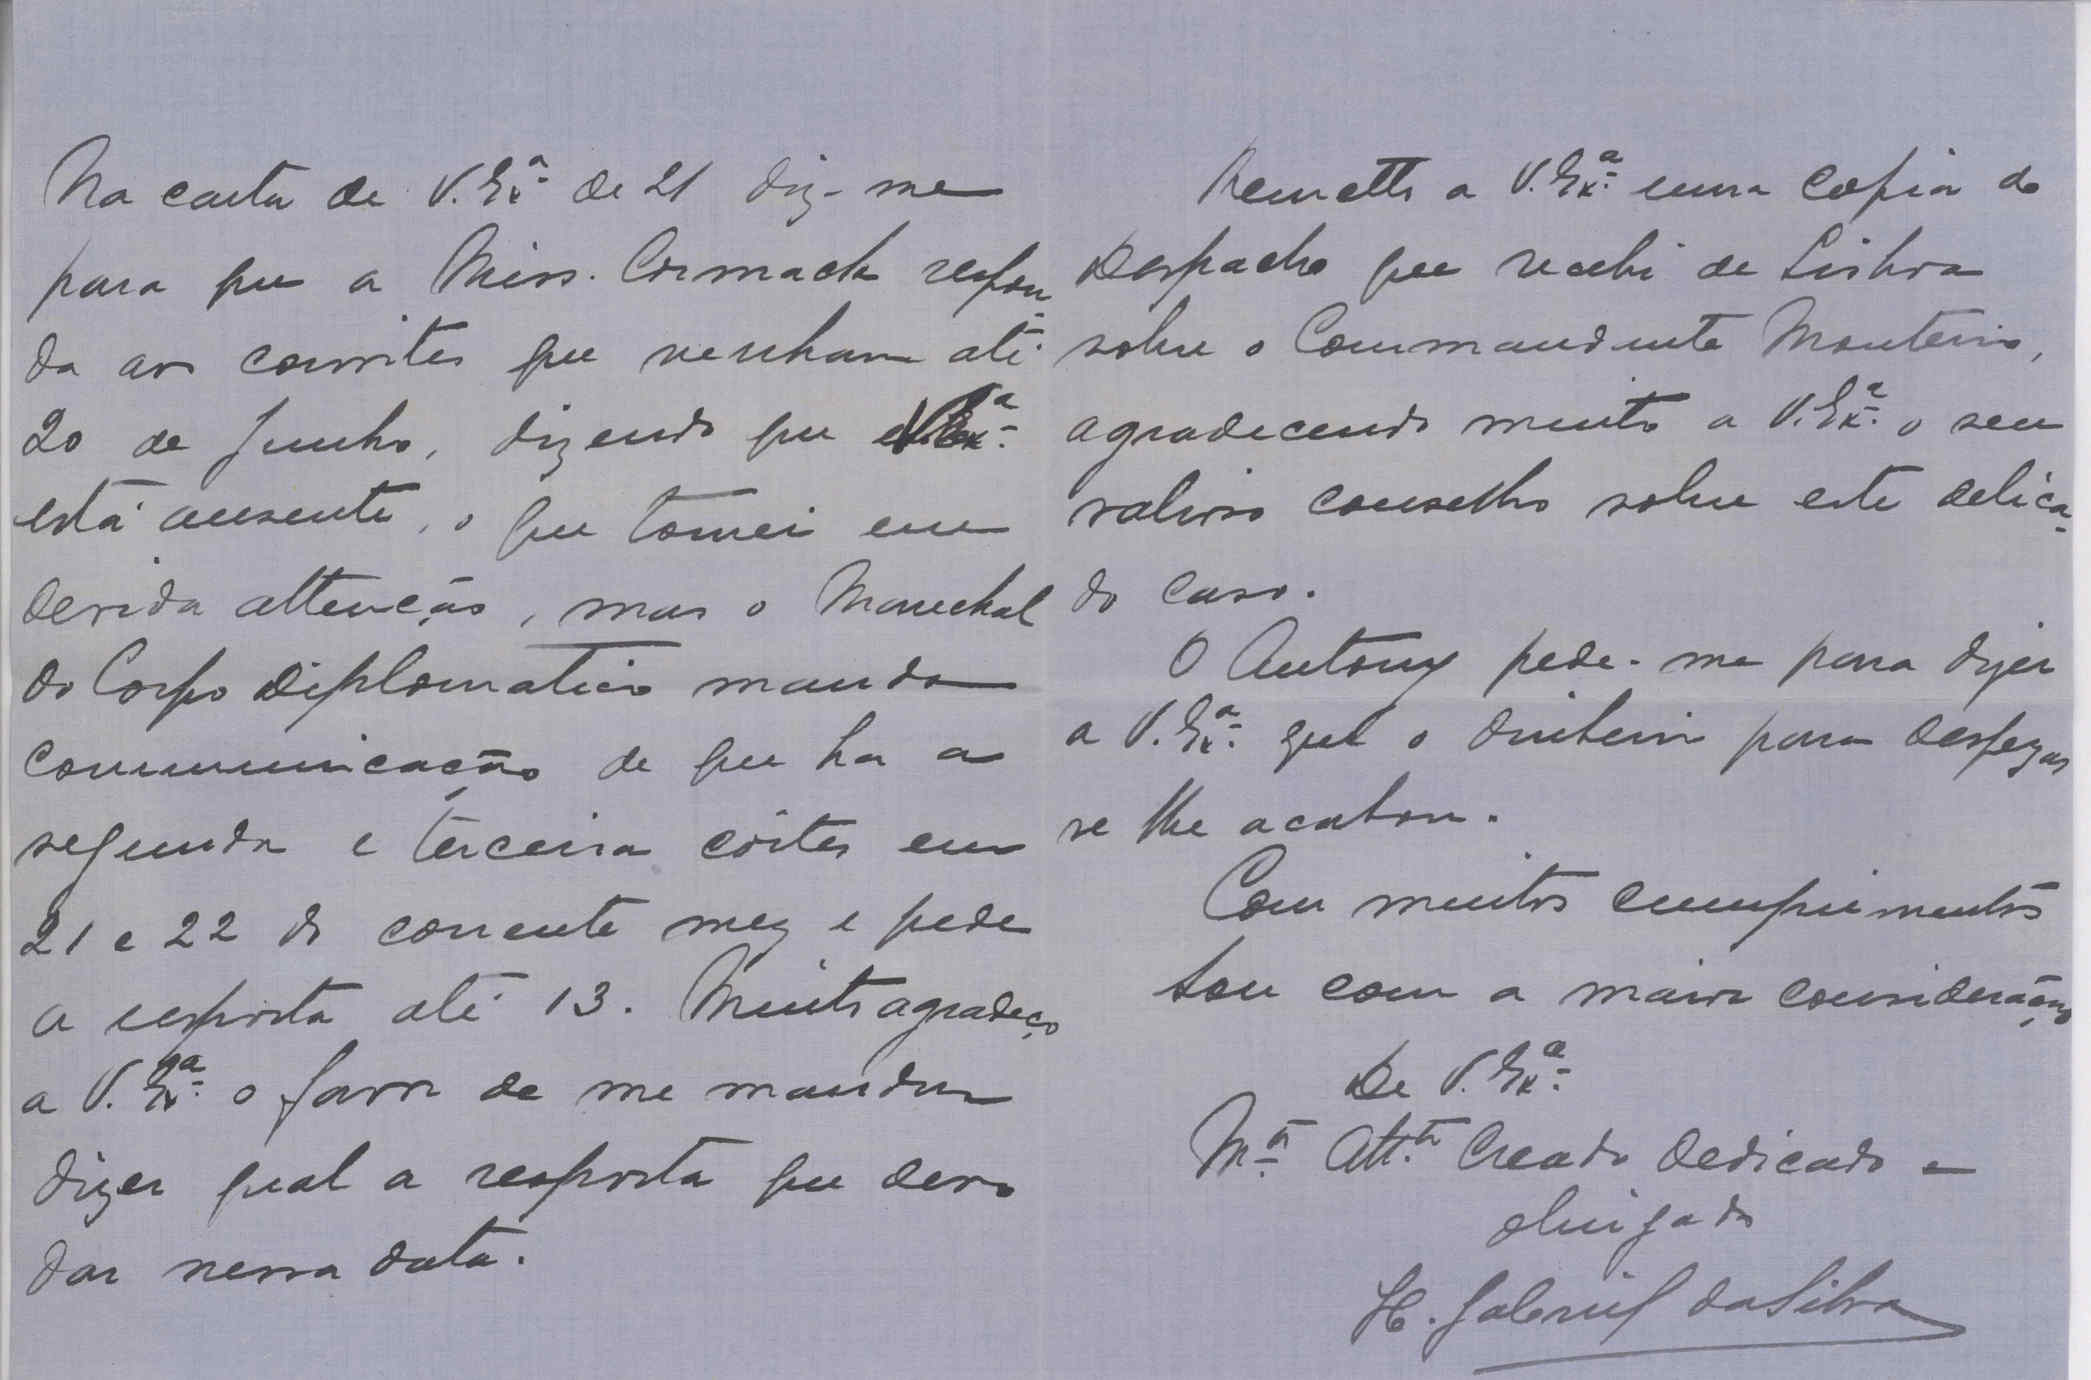 Na carta de V. Exª de 21 diz-me
para que a Miss. Cormack respon-
da aos convites que venham até
20 de Junho, dizendo que V. Exª
está ausente, o que tomei em
devida attenção, mas o Marechal
do Corpo Diplomatico manda
communicação de que ha a
segunda e terceira côrtes em
21 e 22 do corrente mez e pede
a resposta até 13. Muito agradeço
a V. Exª o favor de me mandar
dizer qual a resposta que devo
dar nessa data.
Remetto a V. Exª uma copia do
Despacho que recebi de Lisboa
sobre o Commandante Monteiro,
agradecendo muito a V. Exª o seu
valioso conselho sobre este delica-
do caso.
O Antony pede-me para dizer
a V. Exª que o dinheiro para despezas
se lhe acabou.
Com muitos cumprimentos
Sou com a maior consideração
De V. Exª
Mtº Attº Creado Dedicado e
obrigado
H. Gabriel da Silva